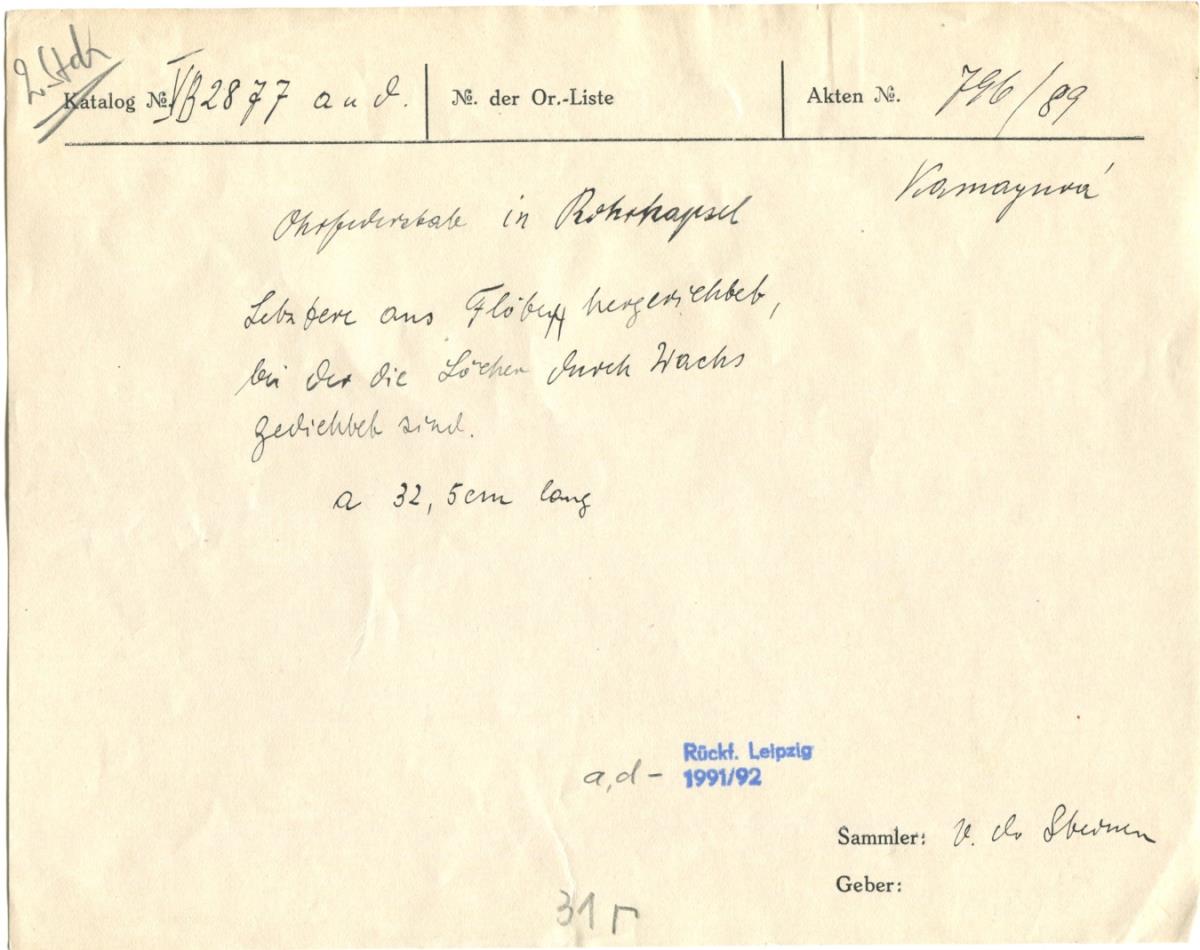 2 Stck
Katalog №. VB 2877 a u d. № der Or.-Liste Akten №. 796/89
Kamayurá
Ohrfederstab in Rohrkapsel
Letztere aus Flöte hergerichtet,
bei der die Löcher durch Wachs
gedichtet sind.
a 32,5 cm lang
a,d – Rückf. Leipzig
1991/92
Sammler: v. d. Steinen
Geber:
31